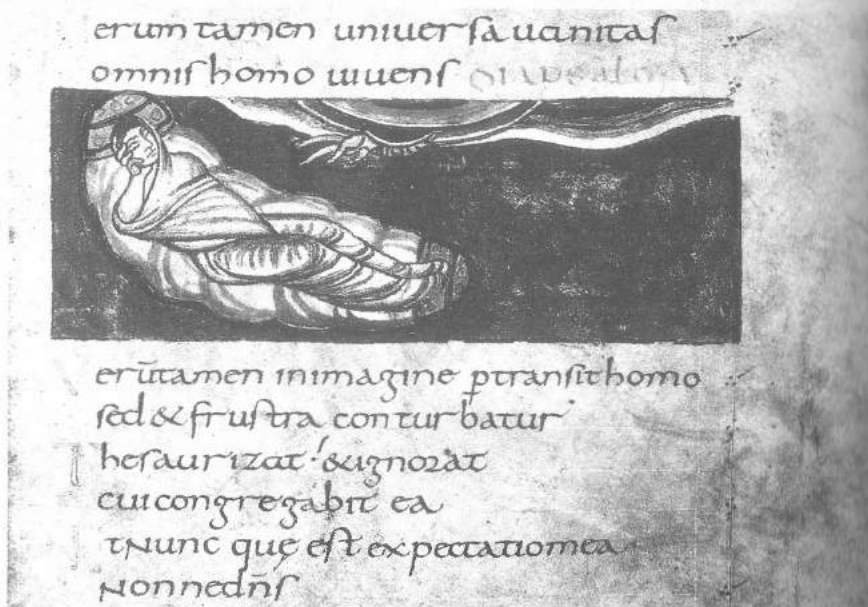 erum tamen uniuersa uanitas
omnis homo uiuens
erūtamen inimagine ptransit homo
sed & frustra conturbatur
hesaurizat & ignorat
cui congregabit ea
tNunc quę est expectatiomea
Nonnedn̄s